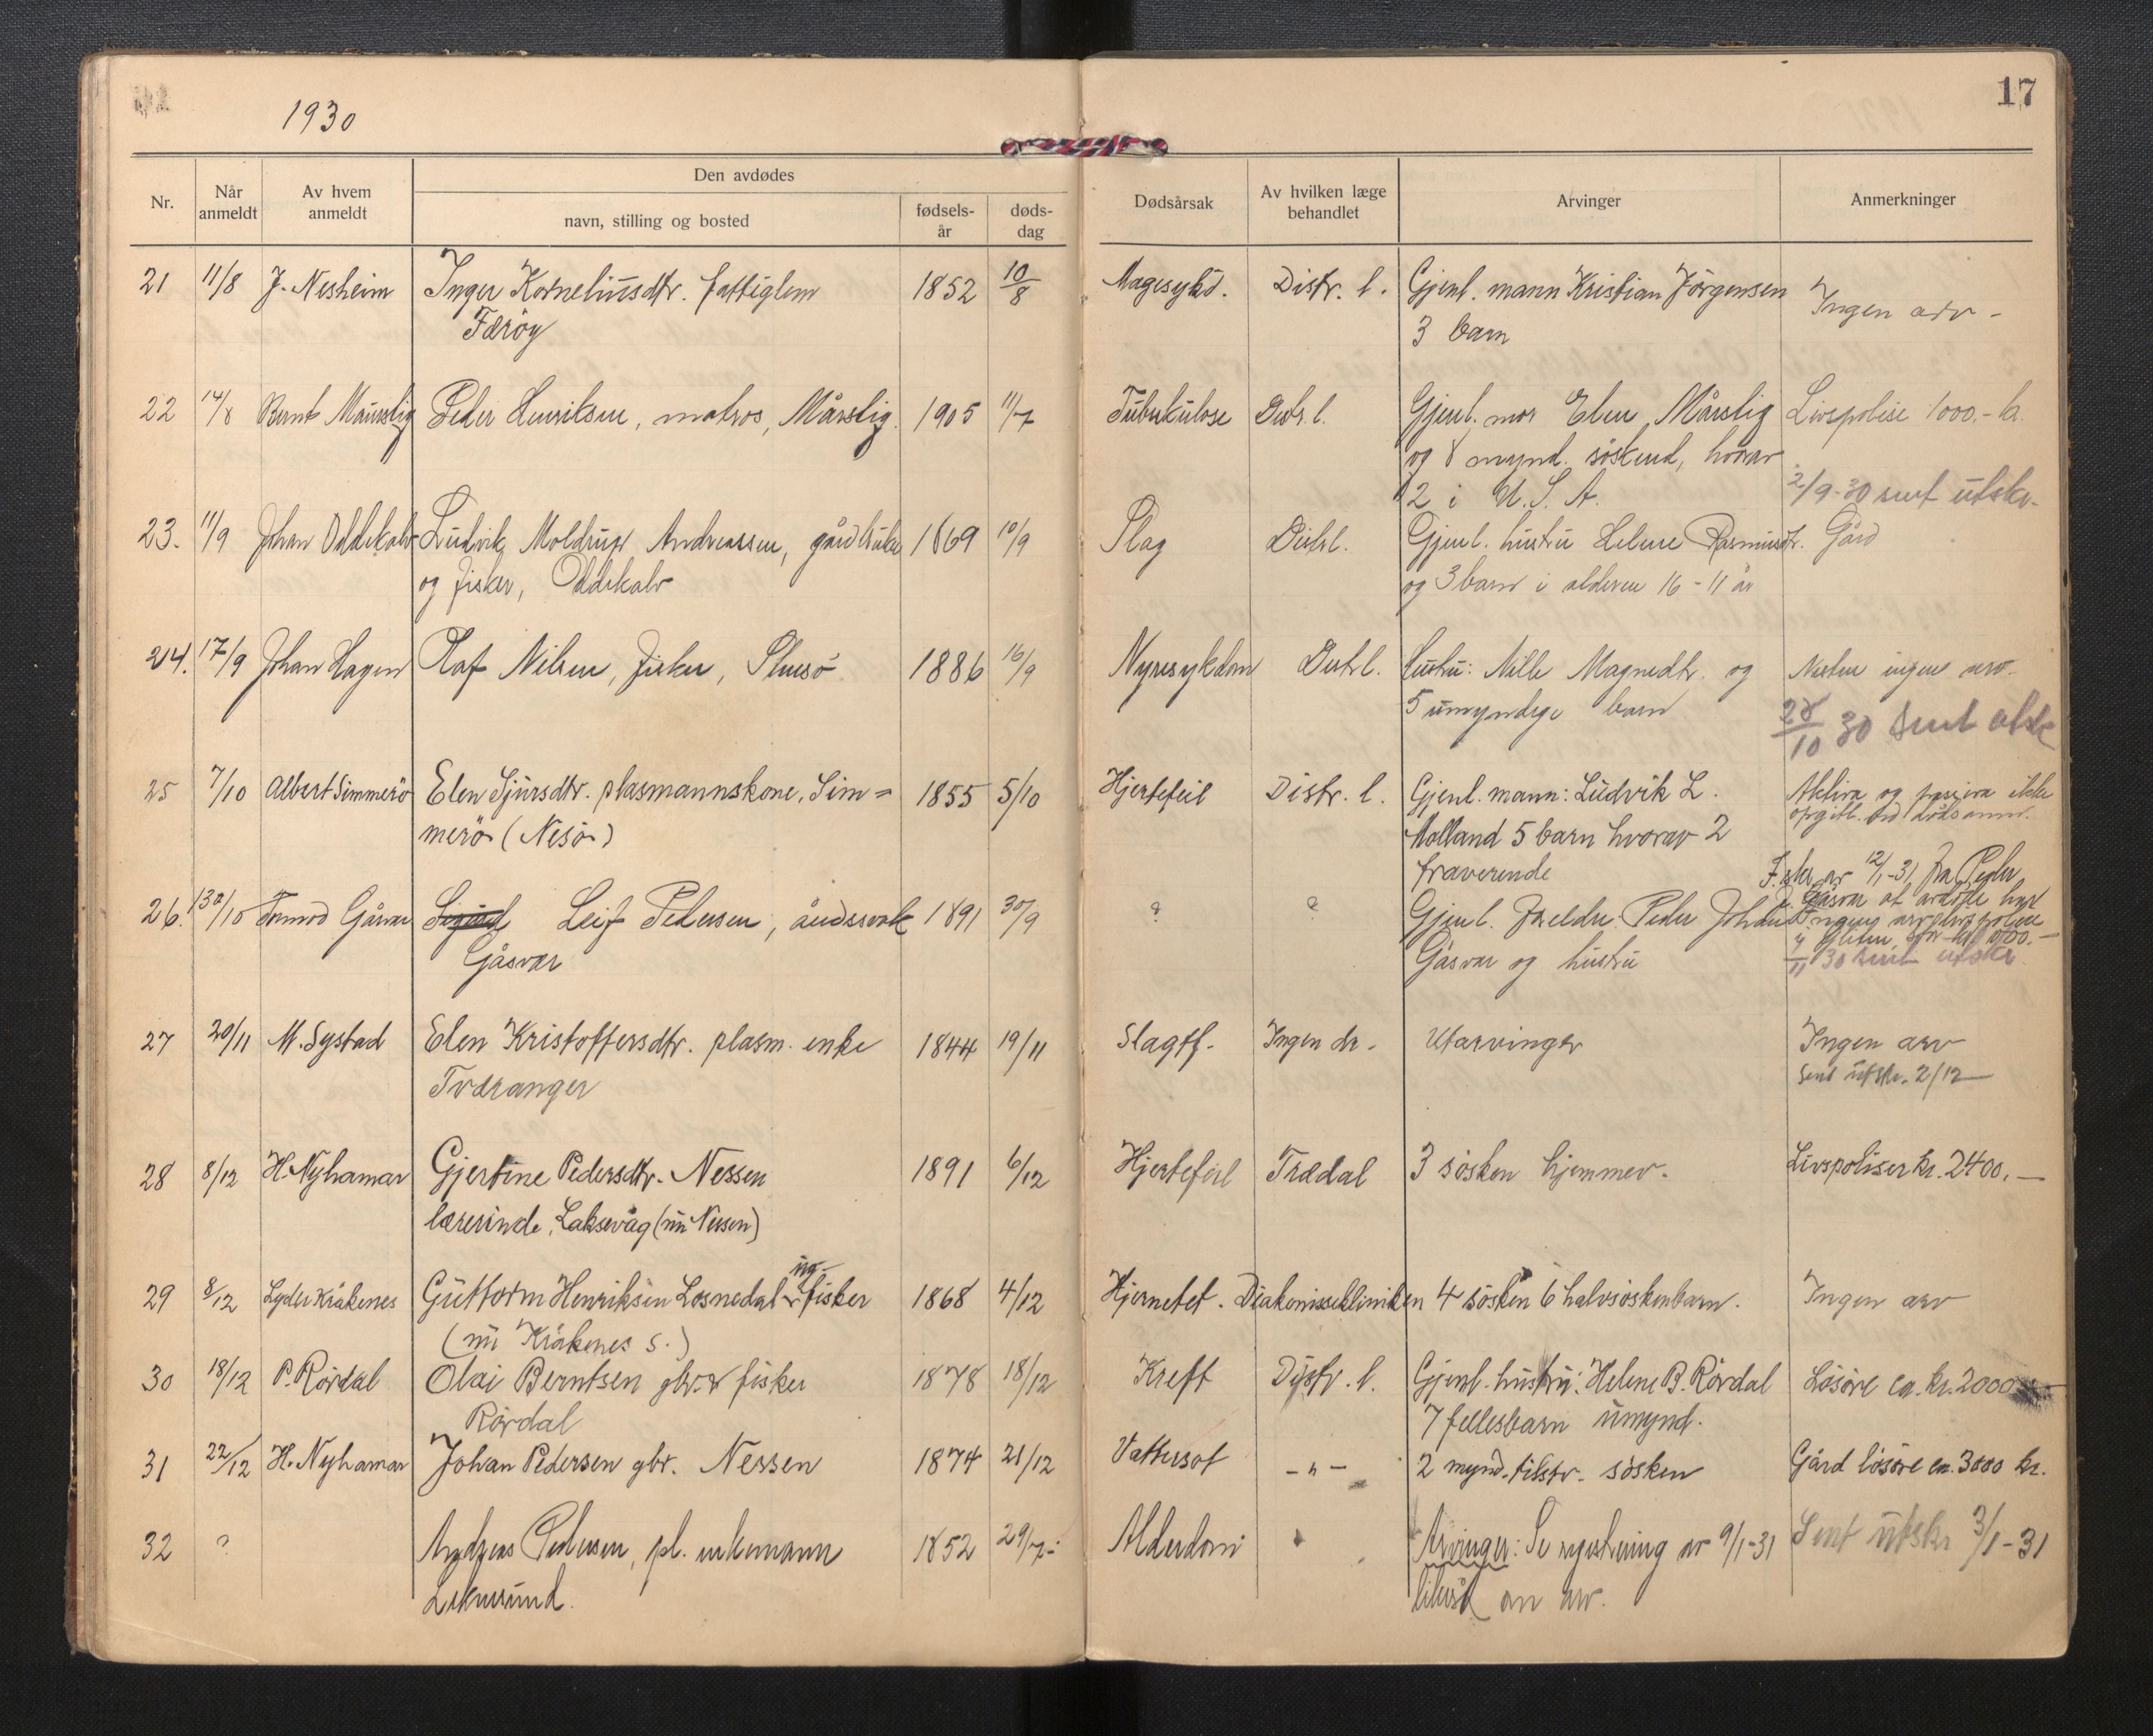 1930
17
Nr.
Når anmeldt
Av hvem anmeldt
Den avdødes
navn, stilling og bosted
fødsels-år
døds-dag
Dødsårsak
Av hvilken læge behandlet
Arvinger
Anmerkninger
21 11/8 J. Nesheim Inger Korneliusdtr. fattiglem 1852 10/8 Magesykd. Distr. l. Gjenl. mann Kristian Jörgensen Ingen arv -
Færöy 3 barn
22 14/8 Bernt Mäurstig Peder Henriksen, matros, Mårstig. 1905 11/7 Tuberkulose Distr. l. Gjenl. mor Elen Mårstig Livspolise 1000.- kr.
og 8 mynd. söskend, hvorav
2 i U. S. A. 2/9-30 sent utskr.
23. 11/9 Johan Oddekalv Ludvik Moldrup Andreassen, gårdbruker 1869 10/9 Slag Distr. l. Gjenl. hustru Helene Rasmusdtr. Gård
og fisker, Oddekalv og 3 barn i alderen 16 - 11 år
24. 17/9 Johan Hagen Olaf Nilsen, fisker, 1886 16/9 Nyresykdom Distr. l. Hustru: Nille Magnedtr. og Nesten ingen arv.
5 umyndige barn 28/10 30 Sent utskr
25 7/10 Albert Simmerö Elen Sjursdtr. plasmannskone, Sim= 1855 5/10 Hjertefeil Distr. l. Gjenl. mann: Ludvik L. Aktiva og passiva ikke
merö (Nesö) Molland 5 barn hvorav 2 opgitt. ved dödsanm.
fraverende
26. 13/10 Tormod Gåsvær Sigurd Leif Pedersen, åndssvak 1891 30/9 ? ? Gjenl. Foreldre Peder Johan F. skr. av 12/1-31 fra Peder
Gåsvær Gåsvær og hustru Gåsvær at avdöde had
ingen arv
11 30 sent utskr
27 20/11 M. Systad Elen Kristoffersdtr. plasm. enke 1844 19/11 Slagtf. Ingen dr. Utarvinger Ingen arv
Tværanger Sent utskr. 2/12
28 8/12 H. Nyhamar Gjertine Pedersdtr. Nessen 1891 6/12 Hjertefeil Trædal 3 sösken hjemmev. Livspoliser kr. 2400.—
lærerinde, Laksevåg (nu Nessen)
29 8/12 Lyder Kråkenes Guttorm Henriksen Losnedal ug- fisker 1868 4/12 Hjernetet. Diakonisseklinikken 4 sösken 6 halvsöskenbarn. Ingen arv
(nu Kråkenes s.)
30 18/12 P. Rördal Olai Berntsen gbr. & fisker 1878 18/12 Kreft Distr. l. Gjenl. hustru: Helene B. Rördal Lösöre ca. kr. 2000
Rördal 7 fellesbarn umynd.
31 22/12 H. Nyhamar Johan Pedersen gbr. Nessen 1874 21/12 Vattersot -"- 2 mynd. tilstr. sösken Gård lösöre ca. 3000 kr.
32 ? Andreas Pedersen, pl. enkemann 1852 29/7 Alderdom Arvinger: Se registrering av 9/1-31 Sent utskr 3/1-31